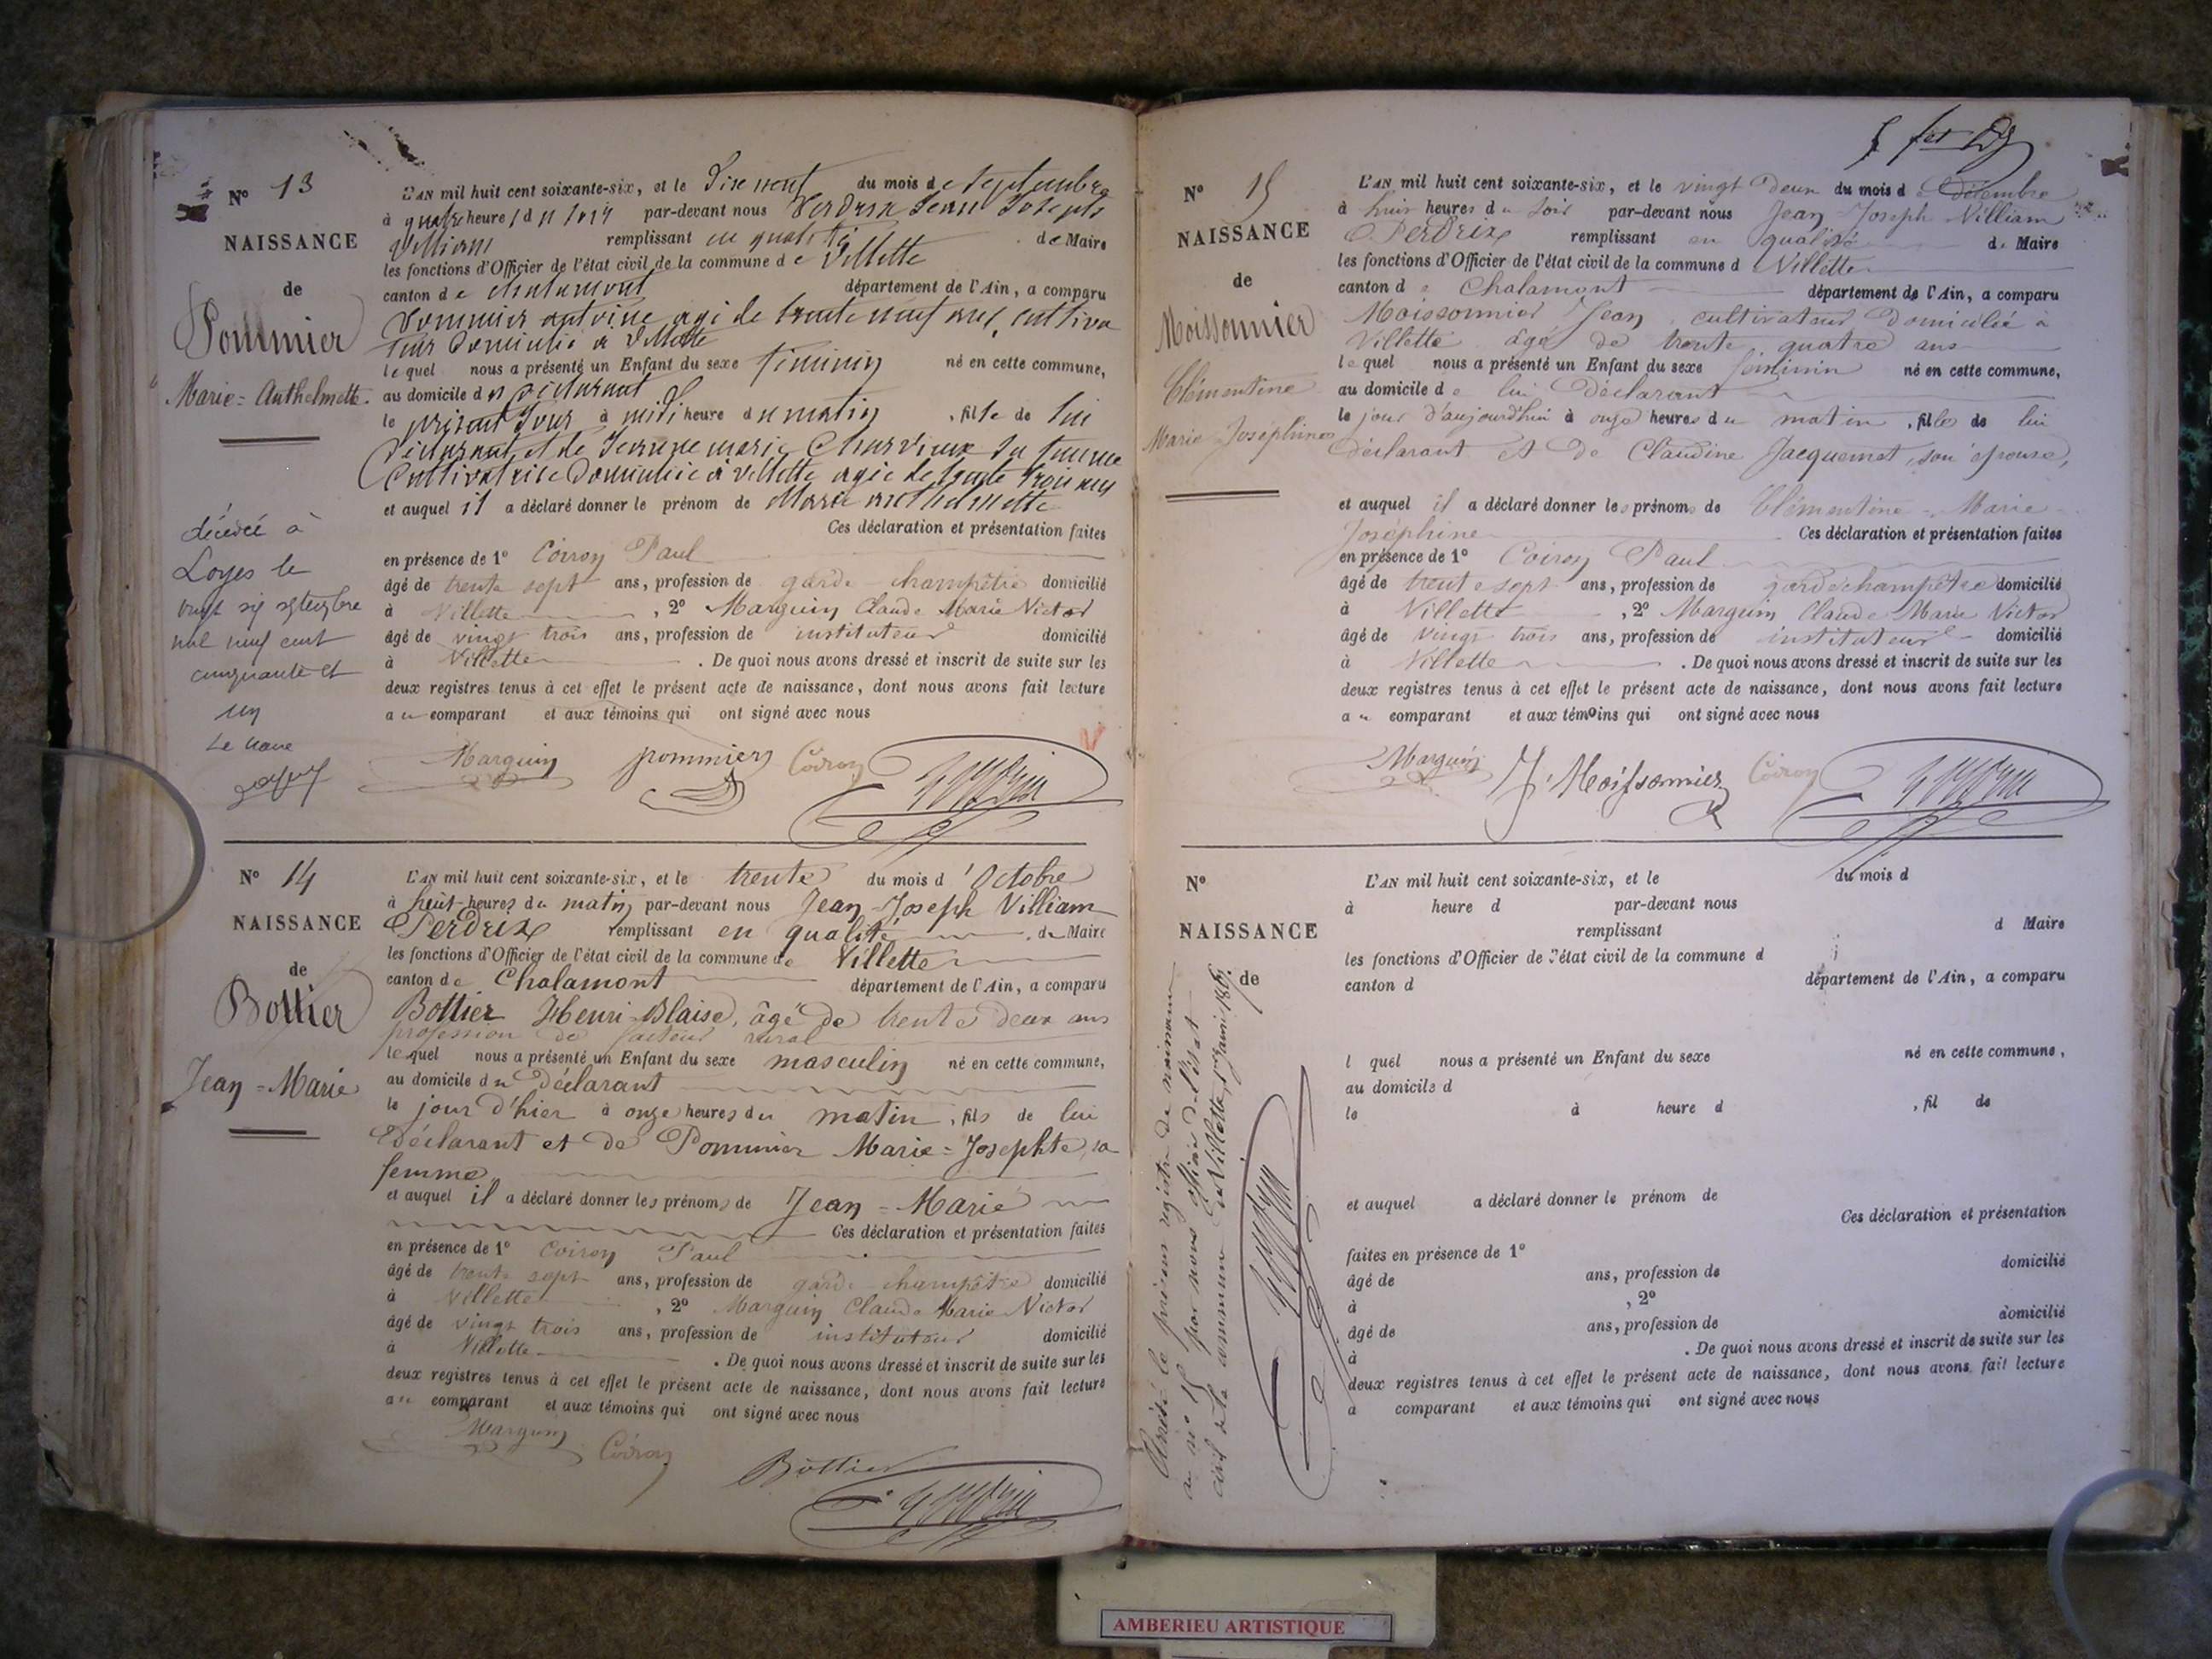 N° 13
NAISSANCE
de
Pommier
Marie=Anthelmette.
décédée à
Loyes le
vingt six septembre
mil neuf cent
cinquante et
un
Le Maire
L'AN mil huit cent soixante-six, et le Dix neuf du mois de septembre
à quatre heures du soir par-devant nous Perdrix Jean Joseph
Villiam remplissant en qualité de Maire
les fonctions d'Officier de l'état civil de la commune de Villette
canton de Chalamont département de l'Ain, a comparu
Pommier antoine agé de trente neuf ans, cultiva
teur Domicilié à Villette
lequel nous a présenté un Enfant du sexe féminin né en cette commune,
au domicile du déclarant
le présent Jour à midi heure du matin , fille de lui
Déclarant et de Jeanne marie Charvieux sa femme
Cultivatrice Domiciliée à Villette agée de trente trois ans
et auquel il a déclaré donner le prénom de Marie anthelmette
Ces déclaration et présentation faites
en présence de 1° Coiron Paul
âgé de trente sept ans, profession de garde-champêtre domicilié
à Villette , 2° Marguin Claude Marie Victor
âgé de vingt trois ans, profession de instituteur domicilié
à Villette . De quoi nous avons dressé et inscrit de suite sur les
deux registres tenus à cet effet le présent acte de naissance, dont nous avons fait lecture
au comparant et aux témoins qui ont signé avec nous
Marguin pommier Coiron
N° 14
NAISSANCE
de
Bottier
Jean=Marie
L'AN mil huit cent soixante-six, et le trente du mois d'Octobre
à huit heures du matin par-devant nous Jean-Joseph Villiam
Perdrix remplissant en qualité de Maire
les fonctions d'Officier de l'état civil de la commune de Villette
canton de Chalamont département de l'Ain, a comparu
Bottier Henri-Blaise, âgé de trente deux ans
profession de facteur rural
lequel nous a présenté un Enfant du sexe masculin né en cette commune,
au domicile du Déclarant
le jour d'hier à onze heures du matin , fils de lui
Déclarant et de Pommier Marie=Josephte, sa
femme
et auquel il a déclaré donner les prénoms de Jean=Marie
Ces déclaration et présentation faites
en présence de 1° Coiron Paul
âgé de trente sept ans, profession de garde-champêtre domicilié
à Villette , 2° Marguin Claude Marie Victor
âgé de vingt trois ans, profession de instituteur domicilié
à Villette . De quoi nous avons dressé et inscrit de suite sur les
deux registres tenus à cet effet le présent acte de naissance, dont nous avons fait lecture
au comparant et aux témoins qui ont signé avec nous
Marguin Coiron Bottier
N° 15
NAISSANCE
de
Moissonnier
Clémentine
Marie-Joséphine
L'AN mil huit cent soixante-six, et le vingt Deux du mois de Décembre
à huit heures du soir par-devant nous Jean-Joseph Villiam
Perdrix remplissant en qualité de Maire
les fonctions d'Officier de l'état civil de la commune d Villette
canton de Chalamont département de l'Ain, a comparu
Moissonnier Jean, cultivateur Domicilié à
Villette âgé de trente quatre ans
lequel nous a présenté un Enfant du sexe féminin né en cette commune,
au domicile de lui Déclarant
le jour d'aujourd'hui à onze heures du matin , fille de lui
déclarant et de Claudine Jacquemet, son épouse,
et auquel il a déclaré donner les prénoms de Clémentine-Marie
Joséphine Ces déclaration et présentation faites
en présence de 1° Coiron Paul
âgé de trente sept ans, profession de garde champêtre domicilié
à Villette , 2° Marguin Claude Marie Victor
âgé de vingt trois ans, profession de instituteur domicilié
à Villette . De quoi nous avons dressé et inscrit de suite sur les
deux registres tenus à cet effet le présent acte de naissance, dont nous avons fait lecture
au comparant et aux témoins qui ont signé avec nous
Marguin J. Moissonnier Coiron
N°
NAISSANCE
de
L'AN mil huit cent soixante-six, et le du mois d
à heure d par-devant nous
remplissant d Maire
les fonctions d'Officier de l'état civil de la commune d
canton d département de l'Ain, a comparu
l quel nous a présenté un Enfant du sexe né en cette commune,
au domicile d
le à heure d , fil de
et auquel a déclaré donner le prénom de
Ces déclaration et présentation
faites en présence de 1°
âgé de ans, profession de domicilié
à , 2°
âgé de ans, profession de domicilié
à . De quoi nous avons dressé et inscrit de suite sur les
deux registres tenus à cet effet le présent acte de naissance, dont nous avons fait lecture
a comparant et aux témoins qui ont signé avec nous
Arrêté le présent registre de naissance
au n° 15 par nous officier de l'état
civil de la commune de Villette, 1er Janvier 1867.
AMBERIEU ARTISTIQUE